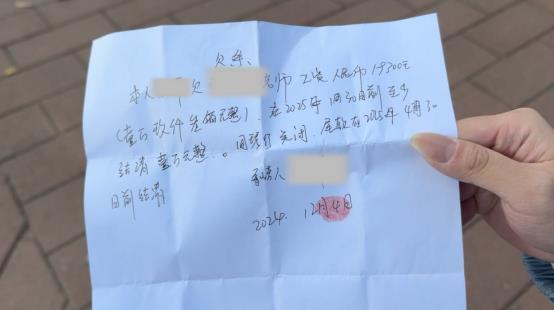 欠条
本人 欠 老师 工资 人民币 19300元
(壹万玖仟叁佰元整)。在2025年1月30日前至少
结清壹万元整。 尾款在2025年4月30
日前结清
2024. 12月4日